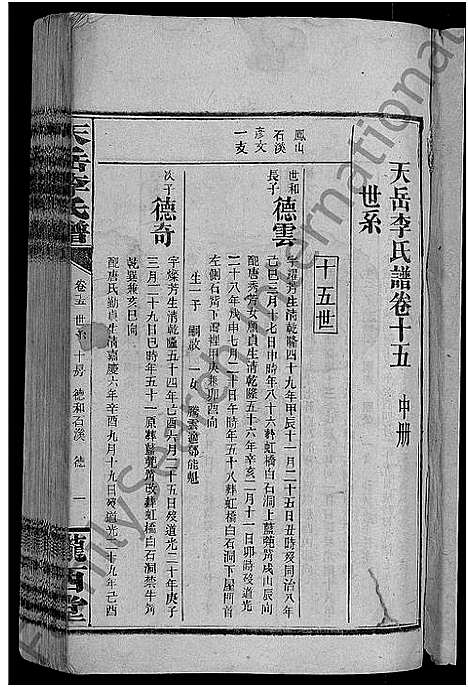 天岳李氏譜卷十五 中册
世系
十五世
鳳山
石溪
彦文
一支
世和
長子
德雲
芳生清乾隆四十九年甲辰十一月二十五日丑時殁同治八年
己巳三月十七日申時年八十六葬虹橋白石洞上藍蔸筲戍山辰向
配唐秀芳女順貞生清乾隆五十六年辛亥二月十一日卯時殁道光
二十八年戊申七月二十日午時年五十八葬虹橋白石洞下屋門首
左側石背下灣裡甲庚兼卯酉向
生一子 嗣啟 一女
次子
德奇
字燦芳生清乾隆五十四年己酉六月二十五日殁道光二十年庚子
三月二十九日巳時年五十一原葬藍蔸筲改葬虹橋白石洞禁牛筲
乾巽兼亥巳向
配唐氏勤貞生清嘉慶六年辛酉九月十九日殁道光二十九年己酉
天岳李氏譜
卷十五 世系 十房 德和石溪 德 一
隴西堂
FamilySearch International